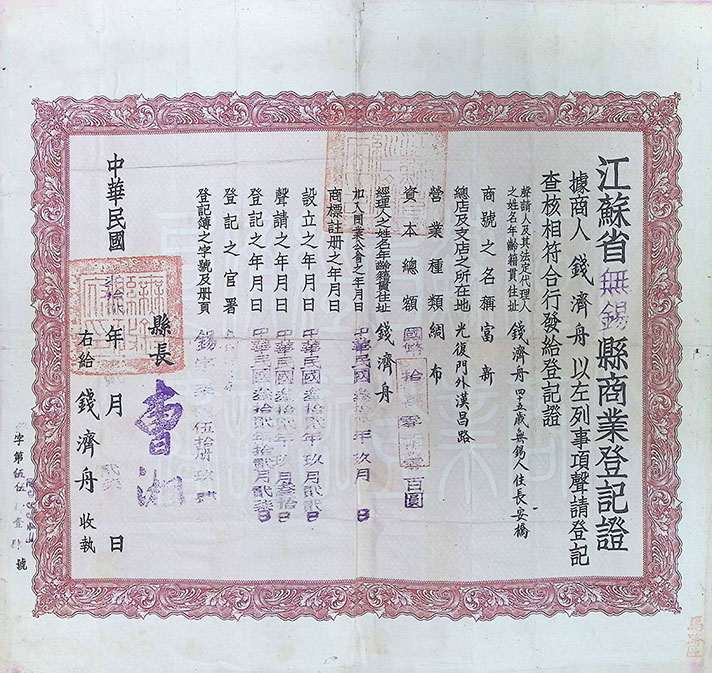 江蘇省無錫縣商業登記證
據商人錢濟舟以左列事項聲請登記
查核相符合行發給登記證
聲請人及其法定代理人之姓名年齡籍貫住址 錢濟舟四十五歲無錫人住長安橋
商號之名稱 富新
總店及支店之所在地 光復門外漢昌路
營業種類 綢布
資本總額 國幣拾 零 零百圓
經理人之姓名年齡籍貫住址 錢濟舟
加入同業公會之年月日 中華民國叁拾 年玖月 日
商標註册之年月日
設立之年月日 中華民國叁拾貳年玖月貳 日
聲請之年月日 中華民國叁拾貳年玖月叁拾日
登記之年月日 中華民國叁拾貳年拾貳月貳 日
登記之官署
登記簿之字號及册頁 錫 字 伍拾 册玖
縣長 曹湘
中華民國 叁拾 年 月 日
右給 錢濟舟 收執
字第伍伍 壹 號